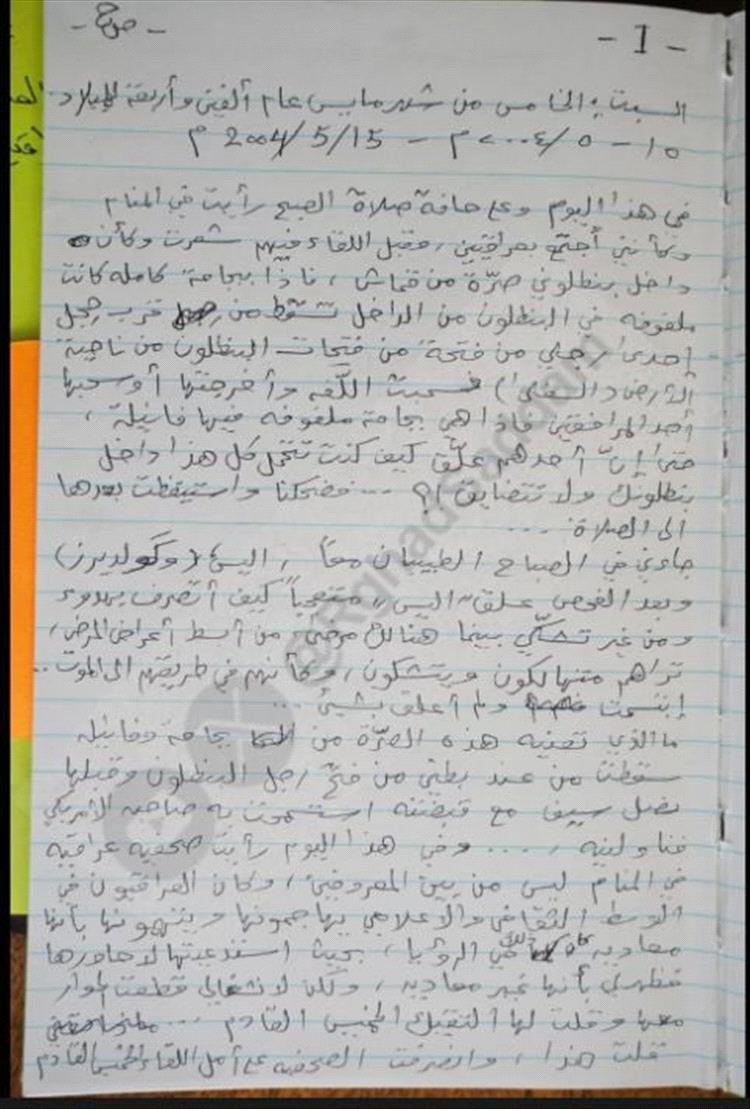 - 1 -
السبت: الخامس من شهر مايس عام ألفين وأربعة للميلاد
١٥ - ٥ / ٢٠٠٤ م - 2004/5/15 م
في هذا اليوم وعلى حافة صلاة الصبح رأيت في المنام
وكأنني أجتمع بعراقيين، وقبل اللقاء فيهم شعرت وكأن
داخل بنطلوني صرّة من قماش، فإذا بجامة كاملة كانت
ملفوفه في البنطلون من الداخل تسقط من قرب رجل
إحدى رجلي من فتحة من فتحات البنطلون من ناحية
الأرض (السفلى) فسحبت اللّفه وأخرجتها أو سحبها
أحد المرافقين فإذا هي بجامة ملفوفه فيها فانيلة،
حتى إنّ أحدهم علّق كيف كنت تتحمل كل هذا داخل
بنطلونك ولا تتضايق!؟ ... فضحكنا واستيقظت بعدها
الى الصلاة ...
جاءني في الصباح الطبيبان معاً، اليس (وگولديرز)
وبعد الفحص علق اليس، متعجباً كيف أتصرف بهدوء
ومن غير تشكّي بينما هنالك مرضى، من أبسط أعراض المرض،
تراهم متهالكون ويتشكون، وكأنهم في طريقهم الى الموت..
إبتسمت ولم أعلق بشيئ ...
ما الذي تعنيه هذه الصرّة من بجامة وفانيله
سقطتا من عند بطني من فتح رجل البنطلون وقبلها
نصل سيف مع قبضته استسمحت به صاحبه الأمريكي
فناولنيه، .... وفي هذا اليوم رأيت صحفيه عراقيه
في المنام ليس من بين المعروفين، وكان العراقيون في
الوسط الثقافي والأعلامي يهاجمونها ويتهمونها بأنها
معاديه في الرؤيا، بحيث استدعيتها لأحاورها
فظهر لي بأنها غير معاديه، ولكن لانشغالي قطعت الحوار
معها وقلت لها ألتقيك الخميس القادم ...
قلت هذا، وانصرفت الصحفيه على أمل اللقاء الخميس القادم
@RghadSaddam